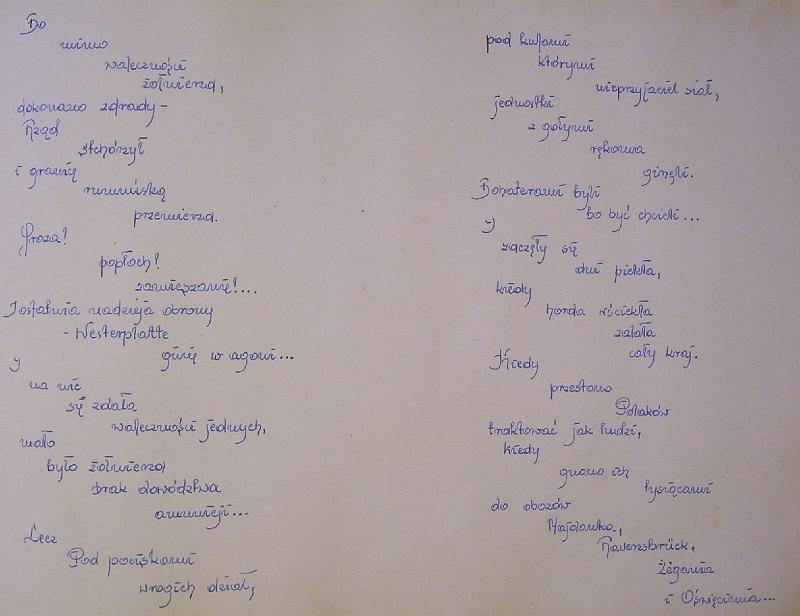 Bo
mimo
waleczności
żołnierza,
dokonano zdrady –
Rząd
stchórzył
i granicę
rumuńską
przemierza.
Groza!
popłoch!
zamieszanie!...
Jostatnia nadzieja obrony
- Westerplatte
ginie w agonii...
I
na nic
się zdała
waleczność jednych,
mało
było żołnierza
brak dowództwa
amunicji...
Lecz
Pod pociskami
wrogich dział,
pod kulami
którymi
nieprzyjaciel siał,
jednostki
z gołymi
rękoma
ginęli.
Bohaterami byli
bo być chcieli...
I
zaczęły się
dni piekła,
kiedy
horda wściekła
zalała
cały kraj.
Kiedy
przestano
Polaków
traktować jak ludzi,
kiedy
gnano ich
tysiącami
do obozów
Majdanka,
Ravensbrück,
Żegania
i Oświęcimia...